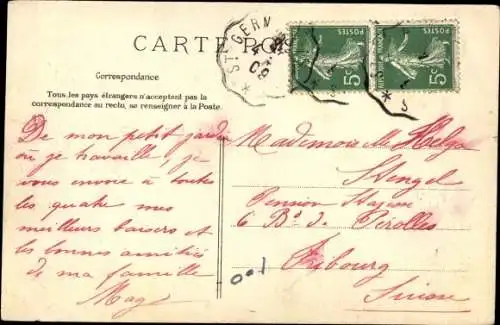 CARTE POS
ST GERM
08
POSTES
5c
POSTES
5c
Correspondance
Tous les pays étrangers n'acceptent pas la
correspondance au recto, se renseigner à la Poste.
De mon petit jardin
où je travaille, je
vous envoie à toutes
les quatre mes
meilleurs baisers et
les bonnes amitiés
de ma famille
Mademoiselle Helga
Stengel
Pension
6 Bd de Pérolles
Fribourg
Suisse